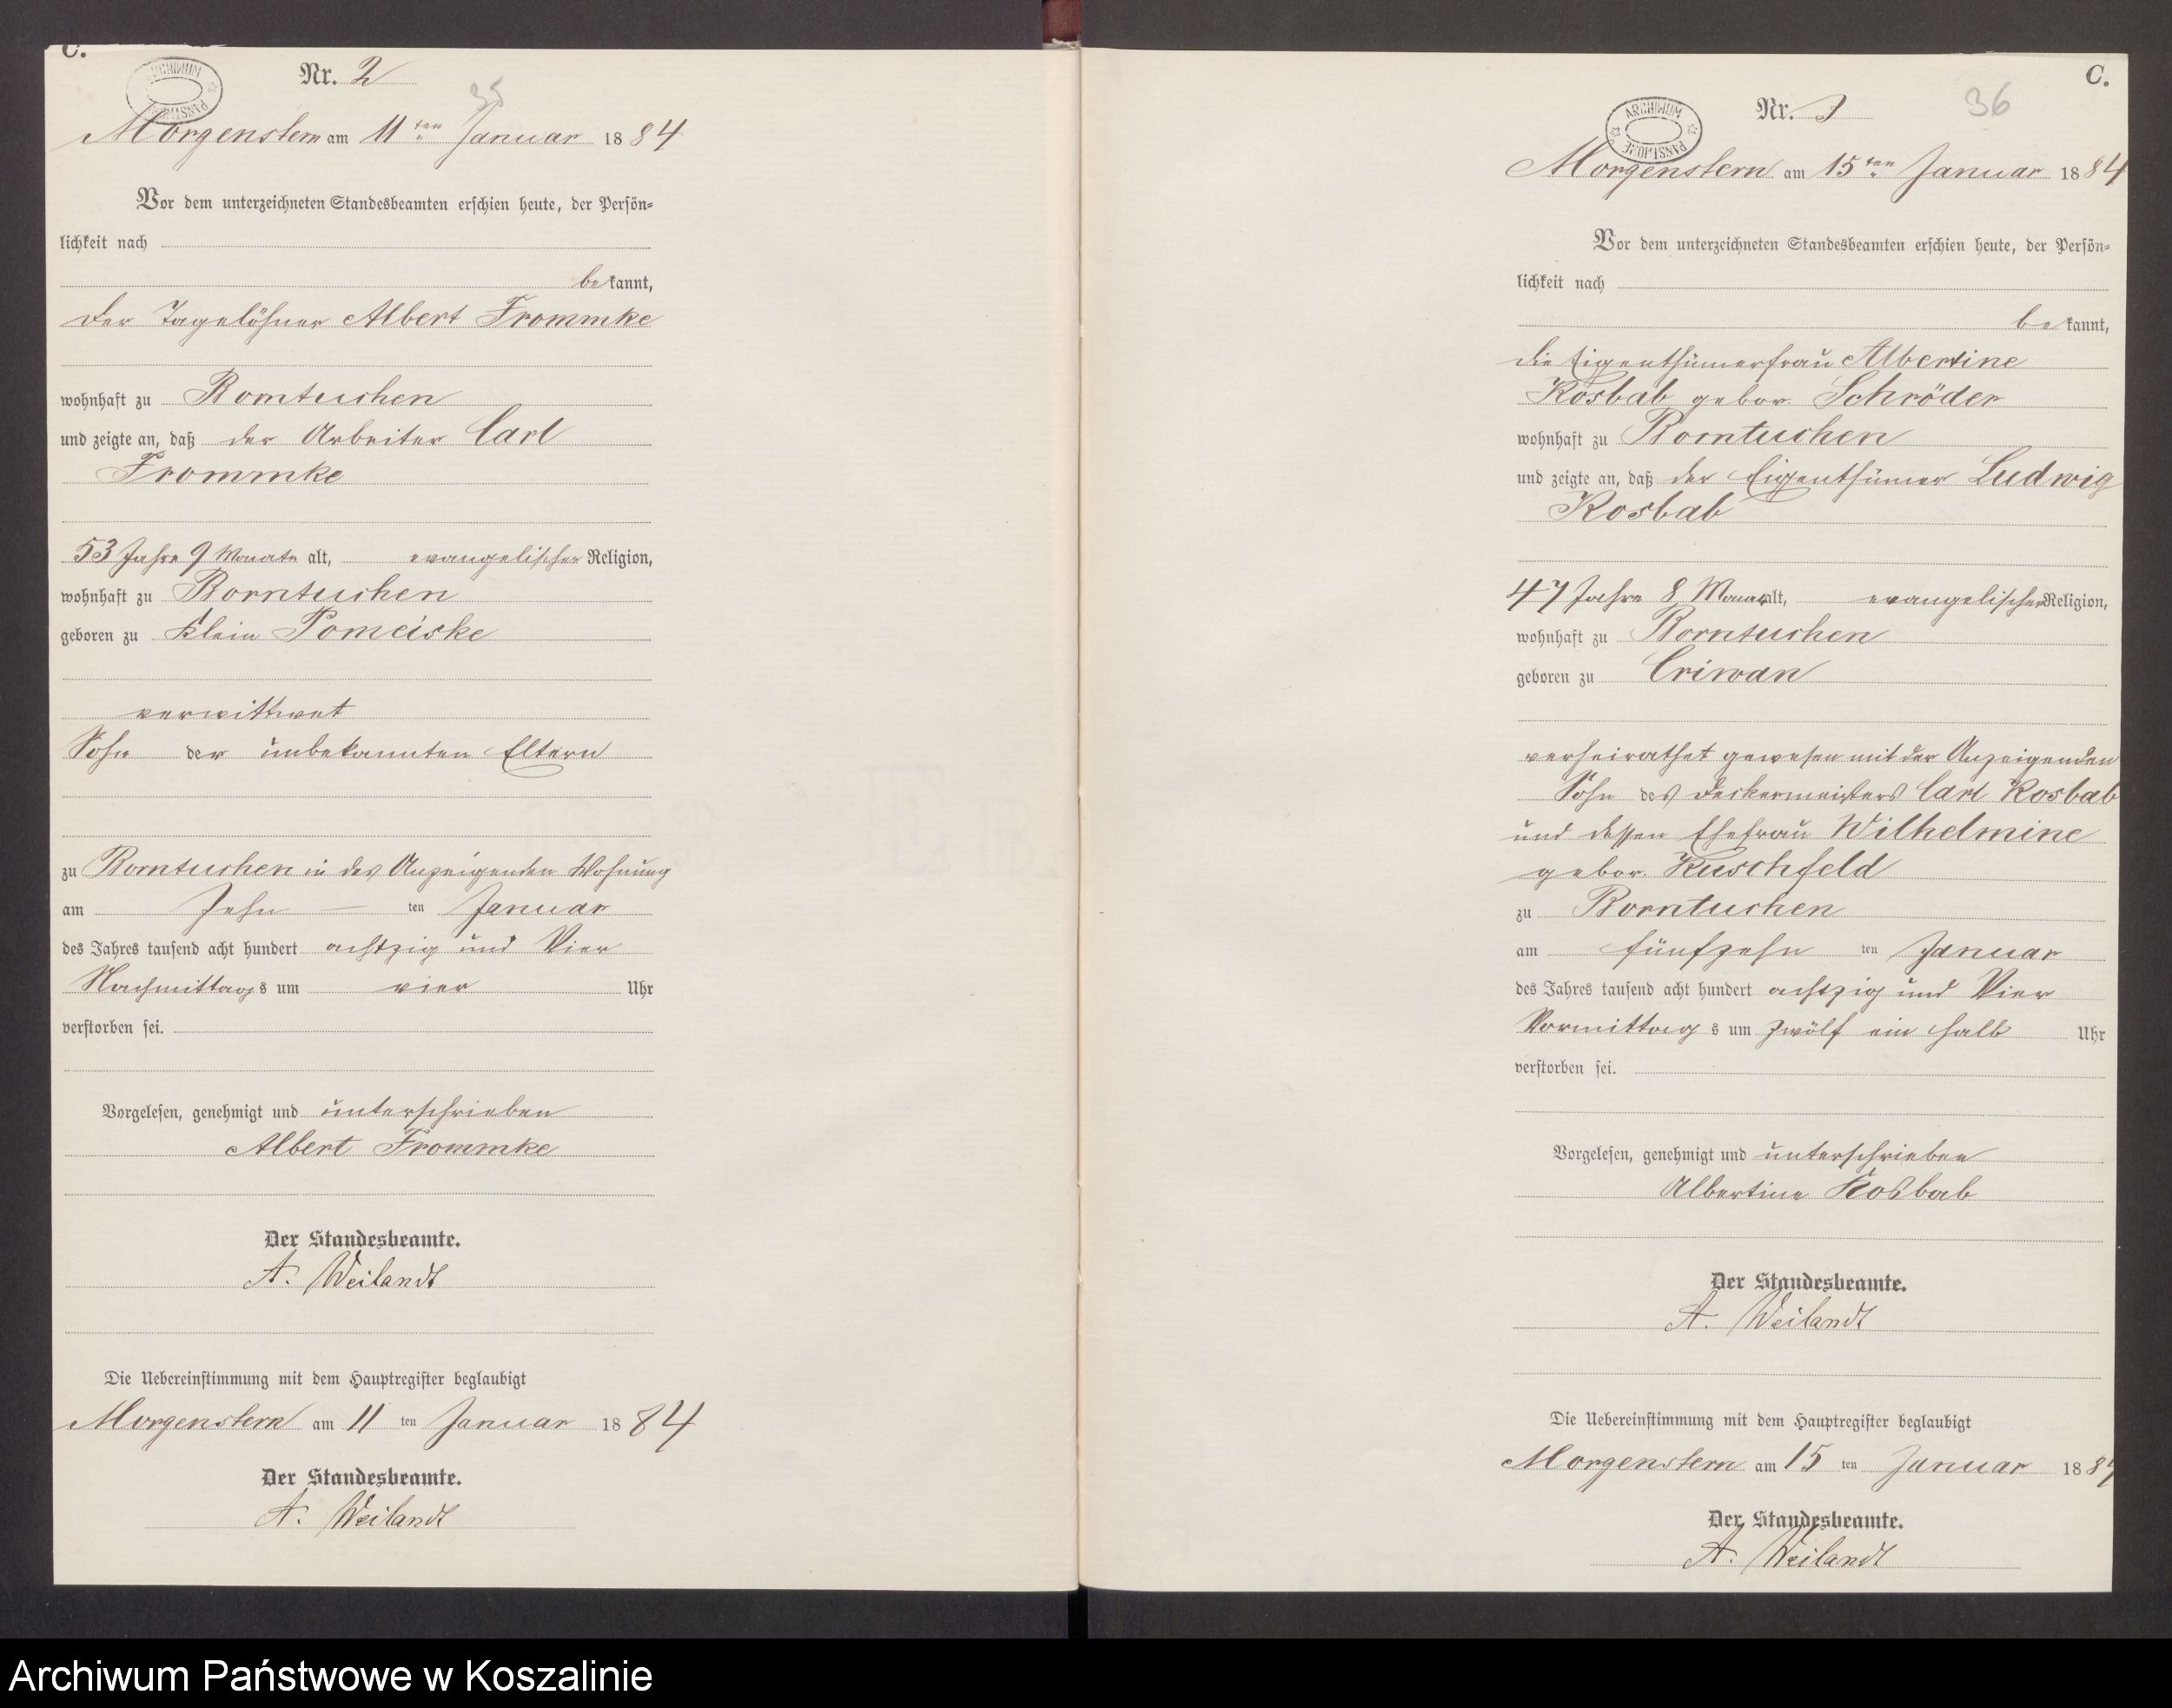 C.
ARCHIWUM PAŃSTWOWE
Nr. 2
35
Morgenstern am 11ten Januar 1884
Vor dem unterzeichneten Standesbeamten erschien heute, der Persön-
lichkeit nach
bekannt,
der Tagelöhner Albert Frommke
wohnhaft zu Borntuchen
und zeigte an, daß der Arbeiter Carl
Frommke
53 Jahre 9 Monate alt, evangelischer Religion,
wohnhaft zu Borntuchen
geboren zu Klein Pomeiske
verwittwet
Sohn der unbekannten Eltern
zu Borntuchen in des Anzeigenden Wohnung
am Zehn ten Januar
des Jahres tausend acht hundert achtzig und Vier
Nachmittags um vier Uhr
verstorben sei.
Vorgelesen, genehmigt und unterschrieben
Albert Frommke
Der Standesbeamte.
A. Weilandt
Die Uebereinstimmung mit dem Hauptregister beglaubigt
Morgenstern am 11 ten Januar 1884
Der Standesbeamte.
A. Weilandt
C.
ARCHIWUM PAŃSTWOWE
Nr. 3
36
Morgenstern am 15ten Januar 1884
Vor dem unterzeichneten Standesbeamten erschien heute, der Persön-
lichkeit nach
bekannt,
die Eigenthümerfrau Albertine
Kosbab gebor. Schröder
wohnhaft zu Borntuchen
und zeigte an, daß der Eigenthümer Ludwig
Kosbab
47 Jahre 8 Monat alt, evangelischer Religion,
wohnhaft zu Borntuchen
geboren zu Criwan
verheirathet gewesen mit der Anzeigenden
Sohn des Deckermeisters Carl Kosbab
und dessen Ehefrau Wilhelmine
gebor. Kuschfeld
zu Borntuchen
am fünfzehn ten Januar
des Jahres tausend acht hundert achtzig und Vier
Vormittags um zwölf ein halb Uhr
verstorben sei.
Vorgelesen, genehmigt und unterschrieben
Albertine Kosbab
Der Standesbeamte.
A. Weilandt
Die Uebereinstimmung mit dem Hauptregister beglaubigt
Morgenstern am 15 ten Januar 1884
Der Standesbeamte.
A. Weilandt
Archiwum Państwowe w Koszalinie